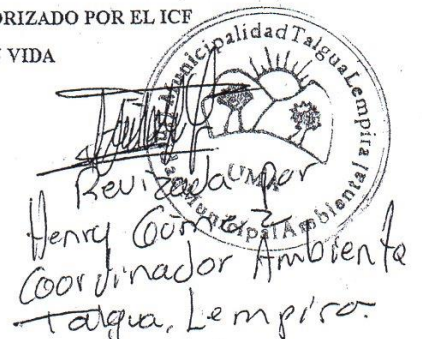 ORIZADO POR EL ICF
VIDA
Municipalidad Talgua Lempira
UMA
Municipal Ambiental
Revizada por
Henry Gómez
Coordinador Ambiente
Talgua, Lempira.